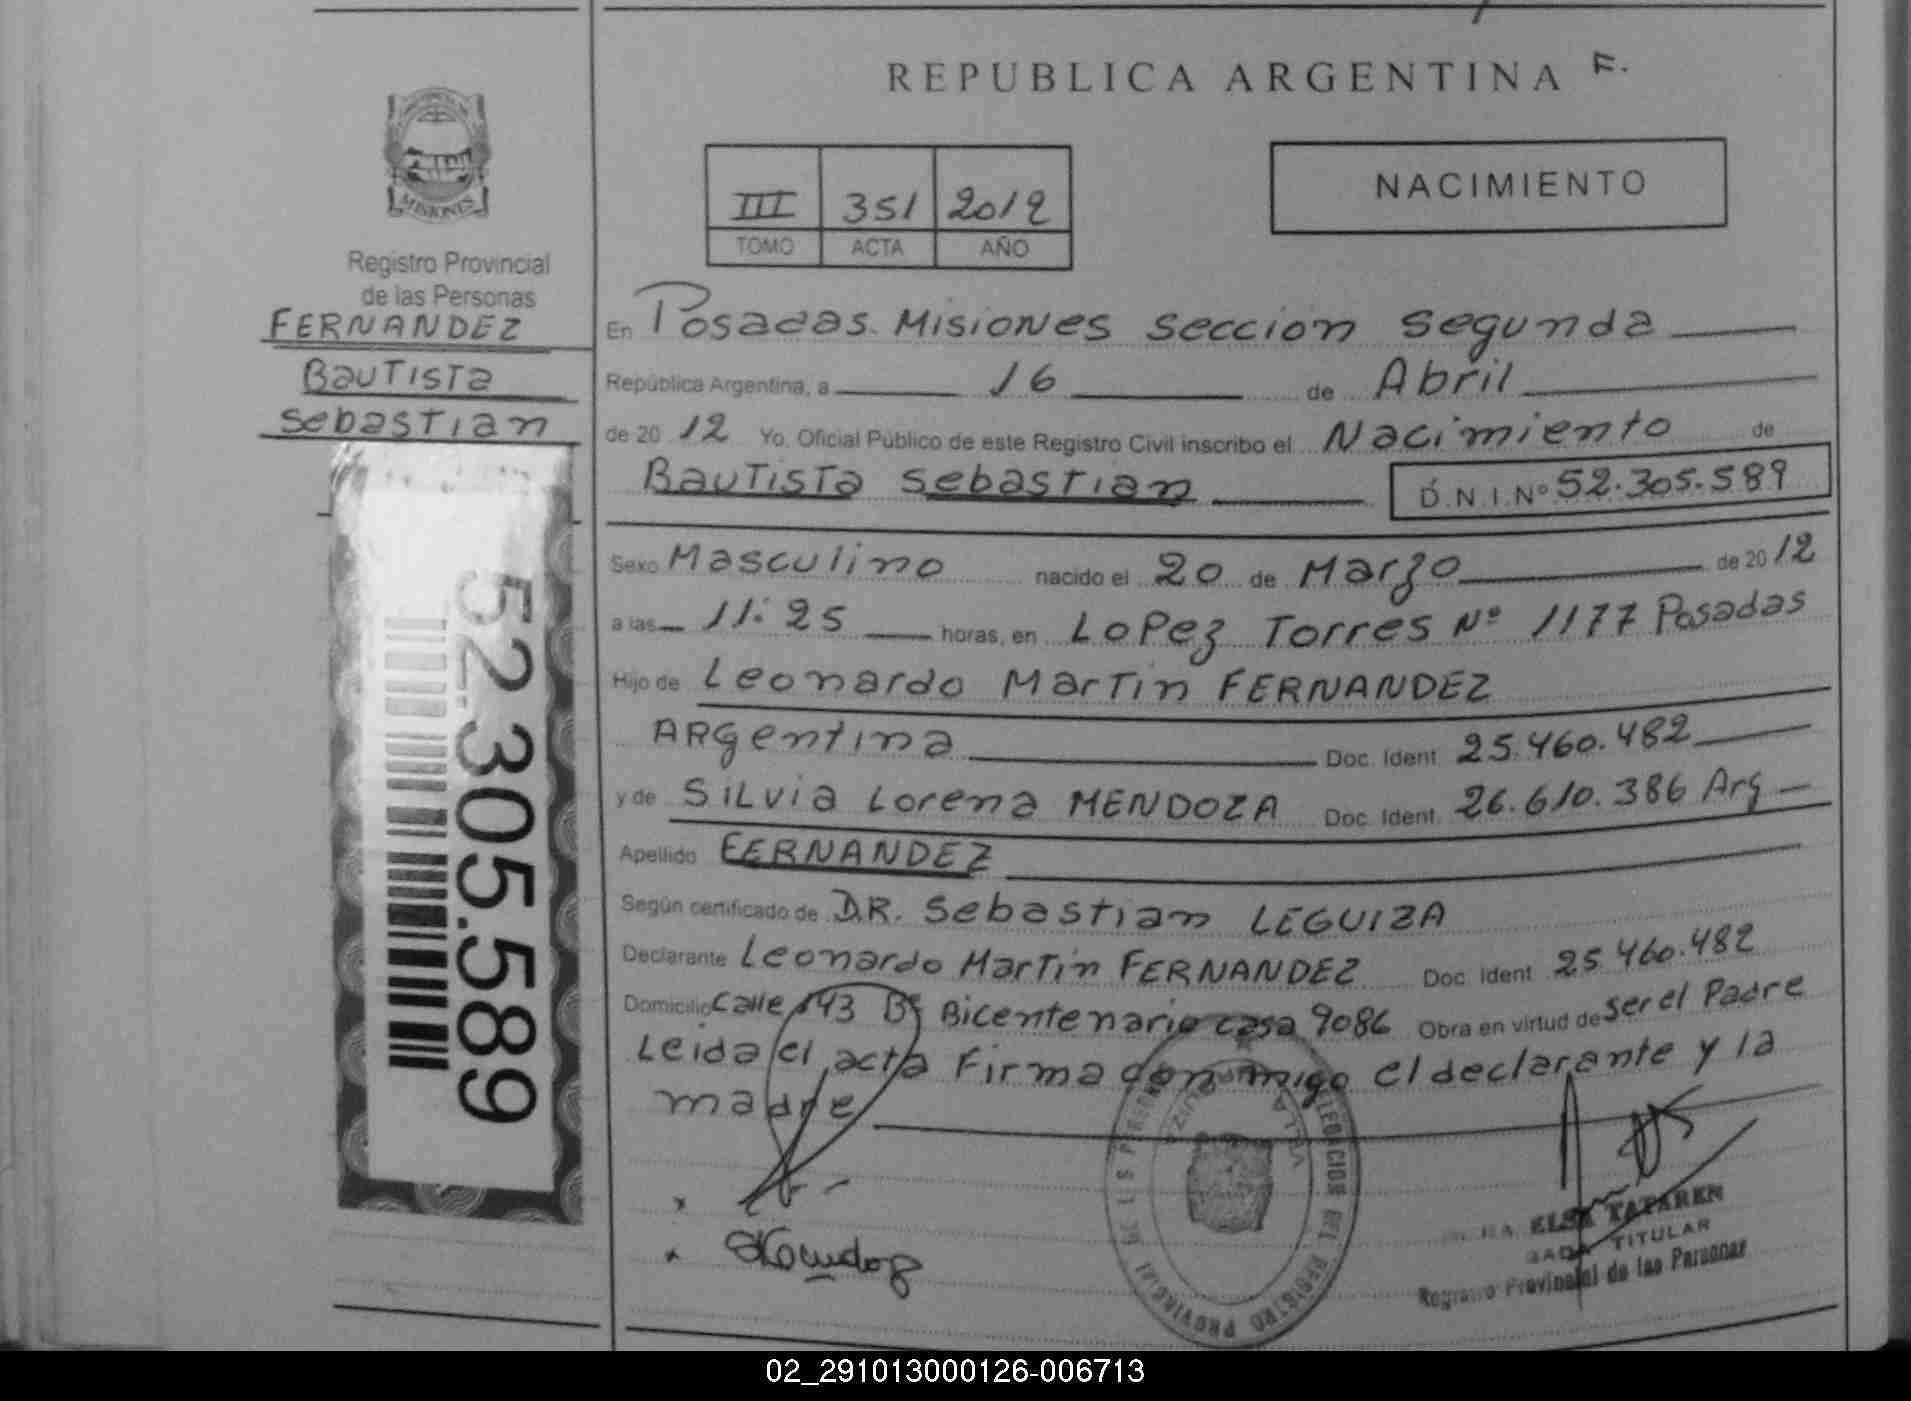 REPUBLICA ARGENTINA F.
MISIONES
Registro Provincial
de las Personas
FERNANDEZ
BauTisTa
sebasTian
52.305.589
III 351 2012
TOMO ACTA AÑO
NACIMIENTO
En Posadas. Misiones seccion segunda
República Argentina, a 16 de Abril
de 20 12 Yo. Oficial Público de este Registro Civil inscribo el Nacimiento de
BauTisTa sebasTian D.N.I.Nº 52.305.589
Sexo Masculino nacido el 20 de Marzo de 20 12
a las 11:25 horas, en LoPez Torres Nº 1177 Posadas
Hijo de Leonardo MarTin FERNANDEZ
ARgentina Doc. Ident. 25.460.482
y de SiLvia Lorena MENDOZA Doc. Ident. 26.610.386 Arg
Apellido FERNANDEZ
Según certificado de D.R. Sebastian LEGUIZA
Declarante Leonardo MarTin FERNANDEZ Doc. Ident 25.460.482
Domicilio Calle 143 Bº Bicentenario casa 9086 Obra en virtud de ser el Padre
Leida el acta Firma conmigo el declarante y la
madre
DELEGACION DEL REGISTRO PROVINCIAL DE LAS PERSONAS
VILLA
ELSA TATAREN
TITULAR
Registro Provincial de las Personas
02_291013000126-006713